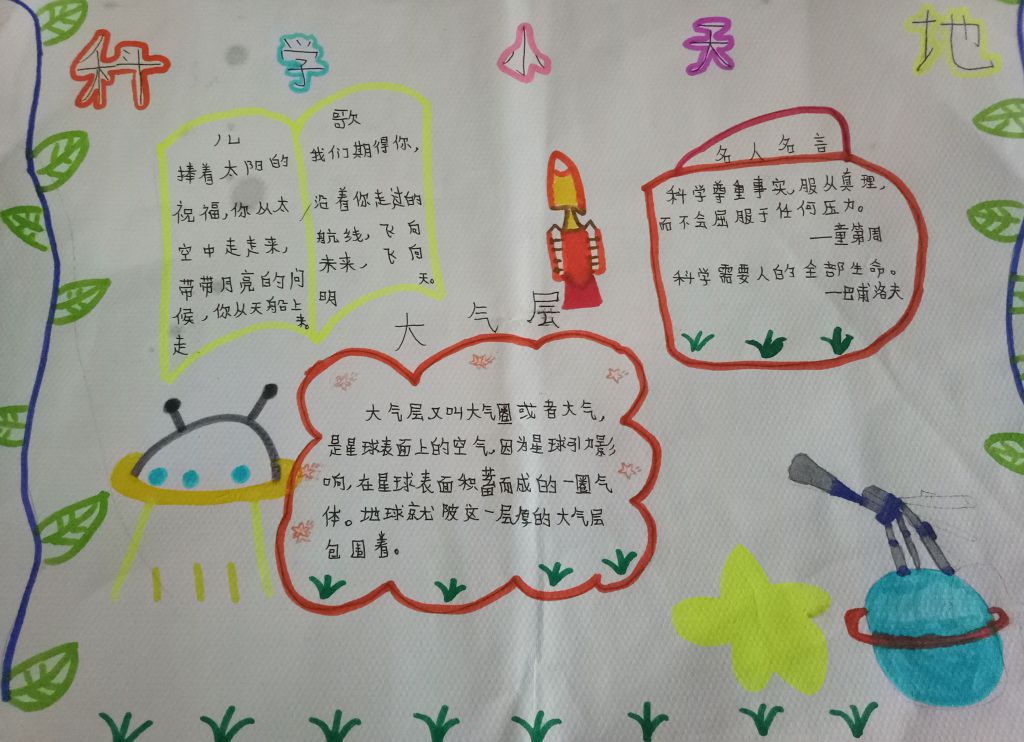 科学小天地
儿
捧着太阳的
祝福,你从太
空中走走来,
带带月亮的问
候,你从天船上
走来。
歌
我们期得你,
沿着你走过的
航线,飞向
未来,飞向
明天。
名人名言
科学尊重事实,服从真理,
而不会屈服于任何压力。
—童第周
科学需要人的全部生命。
—巴甫洛夫
大气层
大气层又叫大气圈或者大气,
是星球表面上的空气,因为星球引力影
响,在星球表面积蓄而成的一圈气
体。地球就被这一层厚的大气层
包围着。